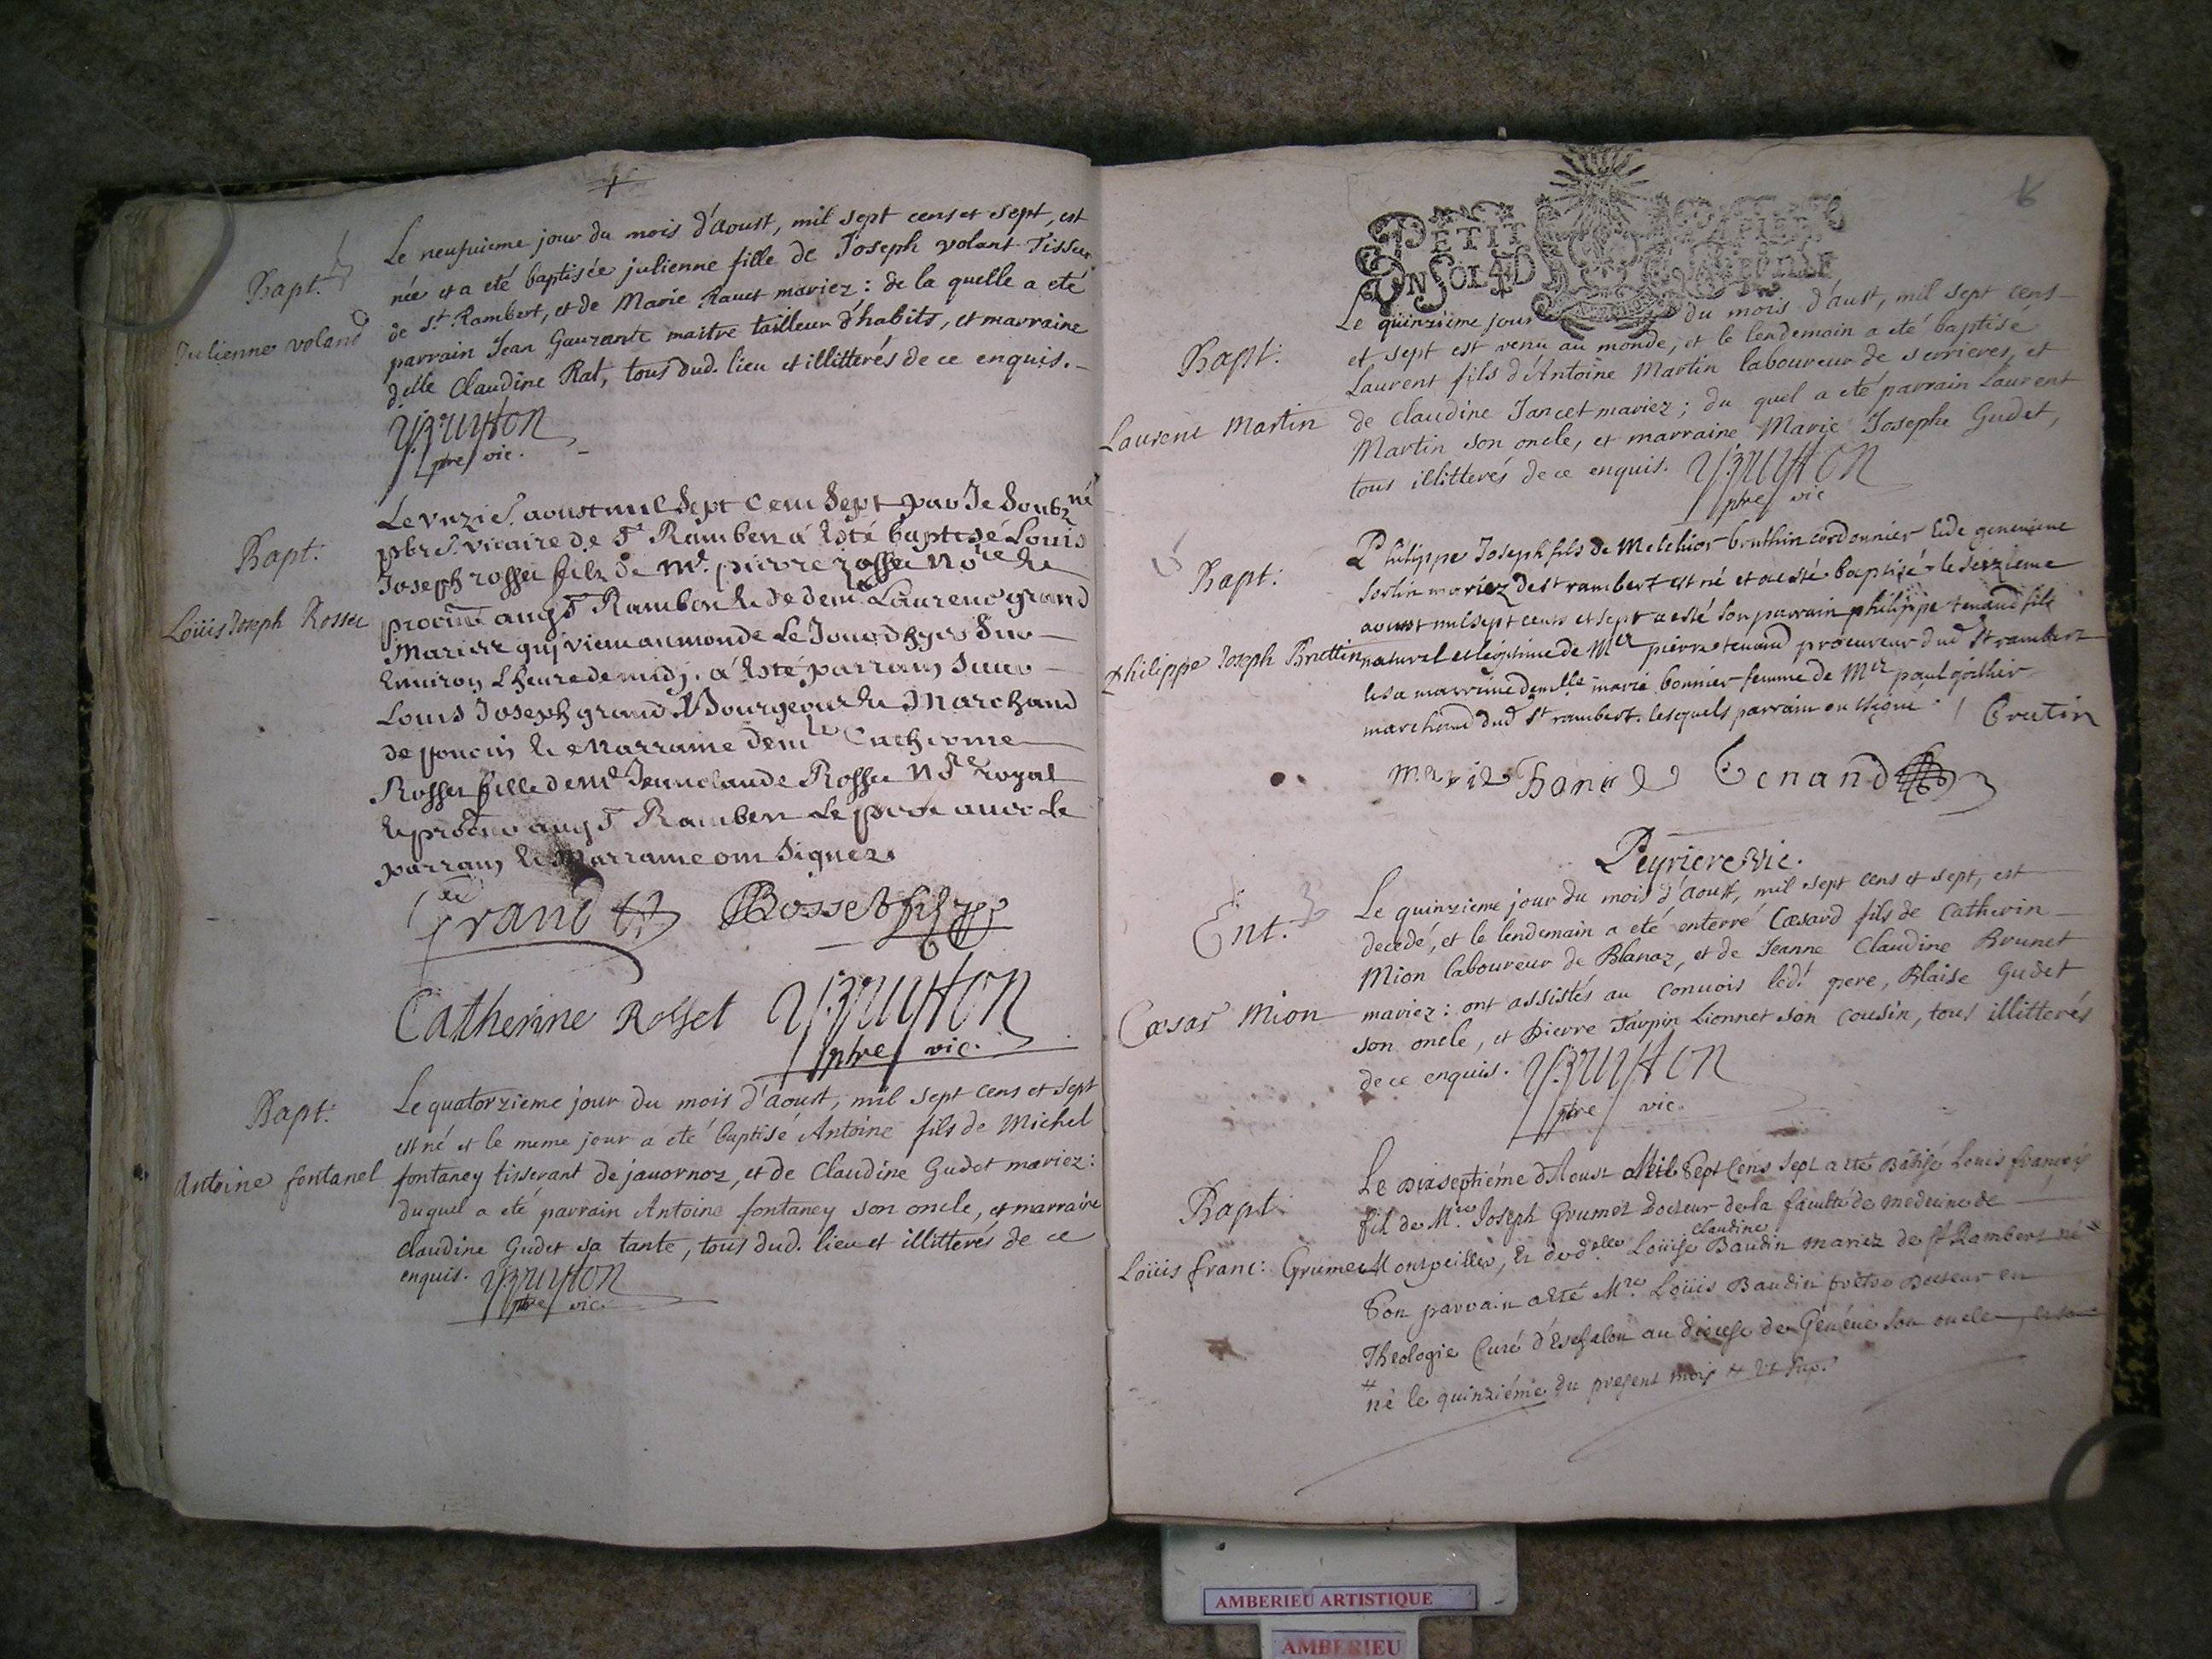 Bapt.
Julienne voland
Le neufuieme jour du mois d'aoust, mil sept cens et sept, est
née et a eté baptisée julienne fille de Joseph volant Tisseur
de St. Rambert, et de Marie Rauet mariez: de la quelle a eté
parrain Jean Gauzante maitre tailleur d'habits, et marraine
d.elle Claudine Rat, tous dud. lieu et illitterés de ce enquis.
Bruyson
ptre vic.
Bapt.
Louis Joseph Rosset
Le vnzie. aoust mil Sept Cens Sept par Je Soubzné
pbre vicaire de St Rambert á Esté baptisé Louis
Joseph rosset fils de Mr. pierre rosset
St Rambert Laurence grand
Mariez
Environ L'heure de midj. á Esté parrain Sieur
Louis Joseph grand Bourgeois & Marchand
de poncin & Marraine demlle Catherine
Rosset fille de Mr Jean claude Rosset royal
St Rambert Le pere auec le
parrain & Marraine ont Signez
Grand Rosset
Catherine Rosset Bruyson
ptre vic.
Bapt.
Antoine fontanel
Le quatorzieme jour du mois d'aoust, mil sept cens et sept
est né et le meme jour a eté baptisé Antoine fils de Michel
fontaney tisserant de jauornoz, et de Claudine Gudet mariez:
du quel a eté parrain Antoine fontaney son oncle, et marraine
Claudine Gudet sa tante, tous dud. lieu et illitterés de ce
enquis. Bruyson
ptre vic.
PETIT PAPIER
UN SOL 4 D
Bapt.
Laurent Martin
Le quinzieme jour du mois d'aust, mil sept cens
et sept est venu au monde, et le lendemain a eté baptisé
Laurent fils d'Antoine Martin laboureur de serrieres, et
de Claudine Jancet mariez; du quel a eté parrain Laurent
Martin son oncle, et marraine Marie Josephe Gudet,
tous illitterés de ce enquis. Bruyson
ptre vic
Bapt.
Philippe Joseph Bruttin
Philippe Joseph fils de Melchior bruthin cordonnier & de geneuieue
Sorlin mariez de st rambert est né et a esté baptisé le Seizieme
aoust mil sept cents et sept a esté son parrain philippe tenand fils
naturel et legitime de Mer pierre tenand procureur dud St rambert
& sa marraine demlle marie bonnier femme de Mer paul gothier
marchand dud St rambert. lesquels parrain ont signé Brutin
marie Tenand
Peyriere vic.
Ent.
Cæsar Mion
Le quinzieme jour du mois d'aoust, mil sept cens et sept, est
decedé, et le lendemain a eté enterré Cæsard fils de Catherin
Mion laboureur de Blanaz, et de Jeanne Claudine Brunet
mariez: ont assistés au conuois led.t pere, Blaise Gudet
son oncle, et Pierre Tarpin Lionnet son cousin, tous illitterés
de ce enquis. Bruyson
ptre vic.
Bapt.
Louis Franc: Grumet
Le Dixseptiéme d'Aoust Mil Sept Cens Sept a eté Batisé Louis françois
fil de Mre. Joseph Grumet Docteur de la faculté de medecine de
Claudine
Montpeiller, Et de delle Louise Baudin mariez de st Rambert né
Son parrain a eté Mre. Louis Baudin Prêtre Docteur en
Theologie Curé d'Eschalon au diocese de Généue son oncle
né le quinziéme du present mois
AMBERIEU ARTISTIQUE
AMBERIEU